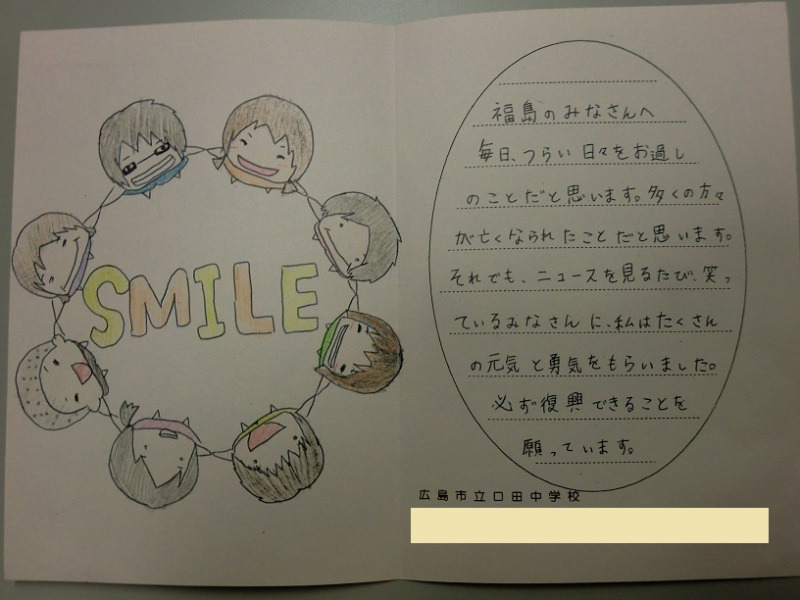 SMILE
福島のみなさんへ
毎日、つらい日々をお過し
のことだと思います。多くの方々
が亡くなられたことだと思います。
それでも、ニュースを見るたび、笑っ
ているみなさんに、私はたくさん
の元気と勇気をもらいました。
必ず復興できることを
願っています。
広島市立口田中学校